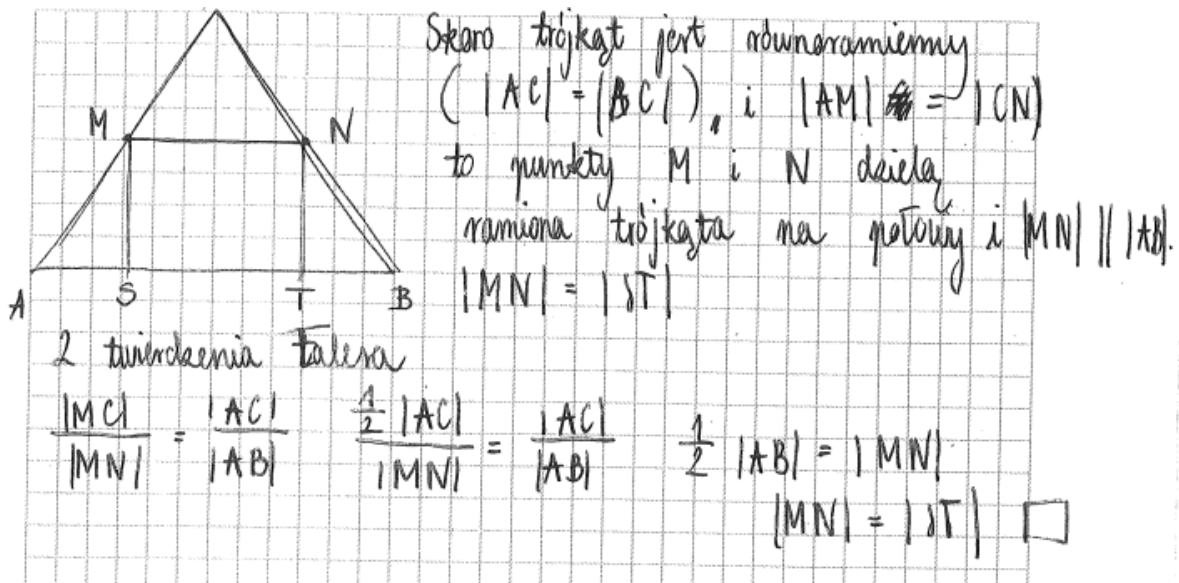 M
N
A
S
T
B
Skoro trójkąt jest równoramienny
( |AC| = |BC| ), i |AM| = |CN|
to punkty M i N dzielą
ramiona trójkąta na połowy i |MN| || |AB|.
|MN| = |ST|
2 twierdzenia Talesa
|MC| / |MN| = |AC| / |AB|    1/2 |AC| / |MN| = |AC| / |AB|    1/2 |AB| = |MN|
|MN| = |ST| □